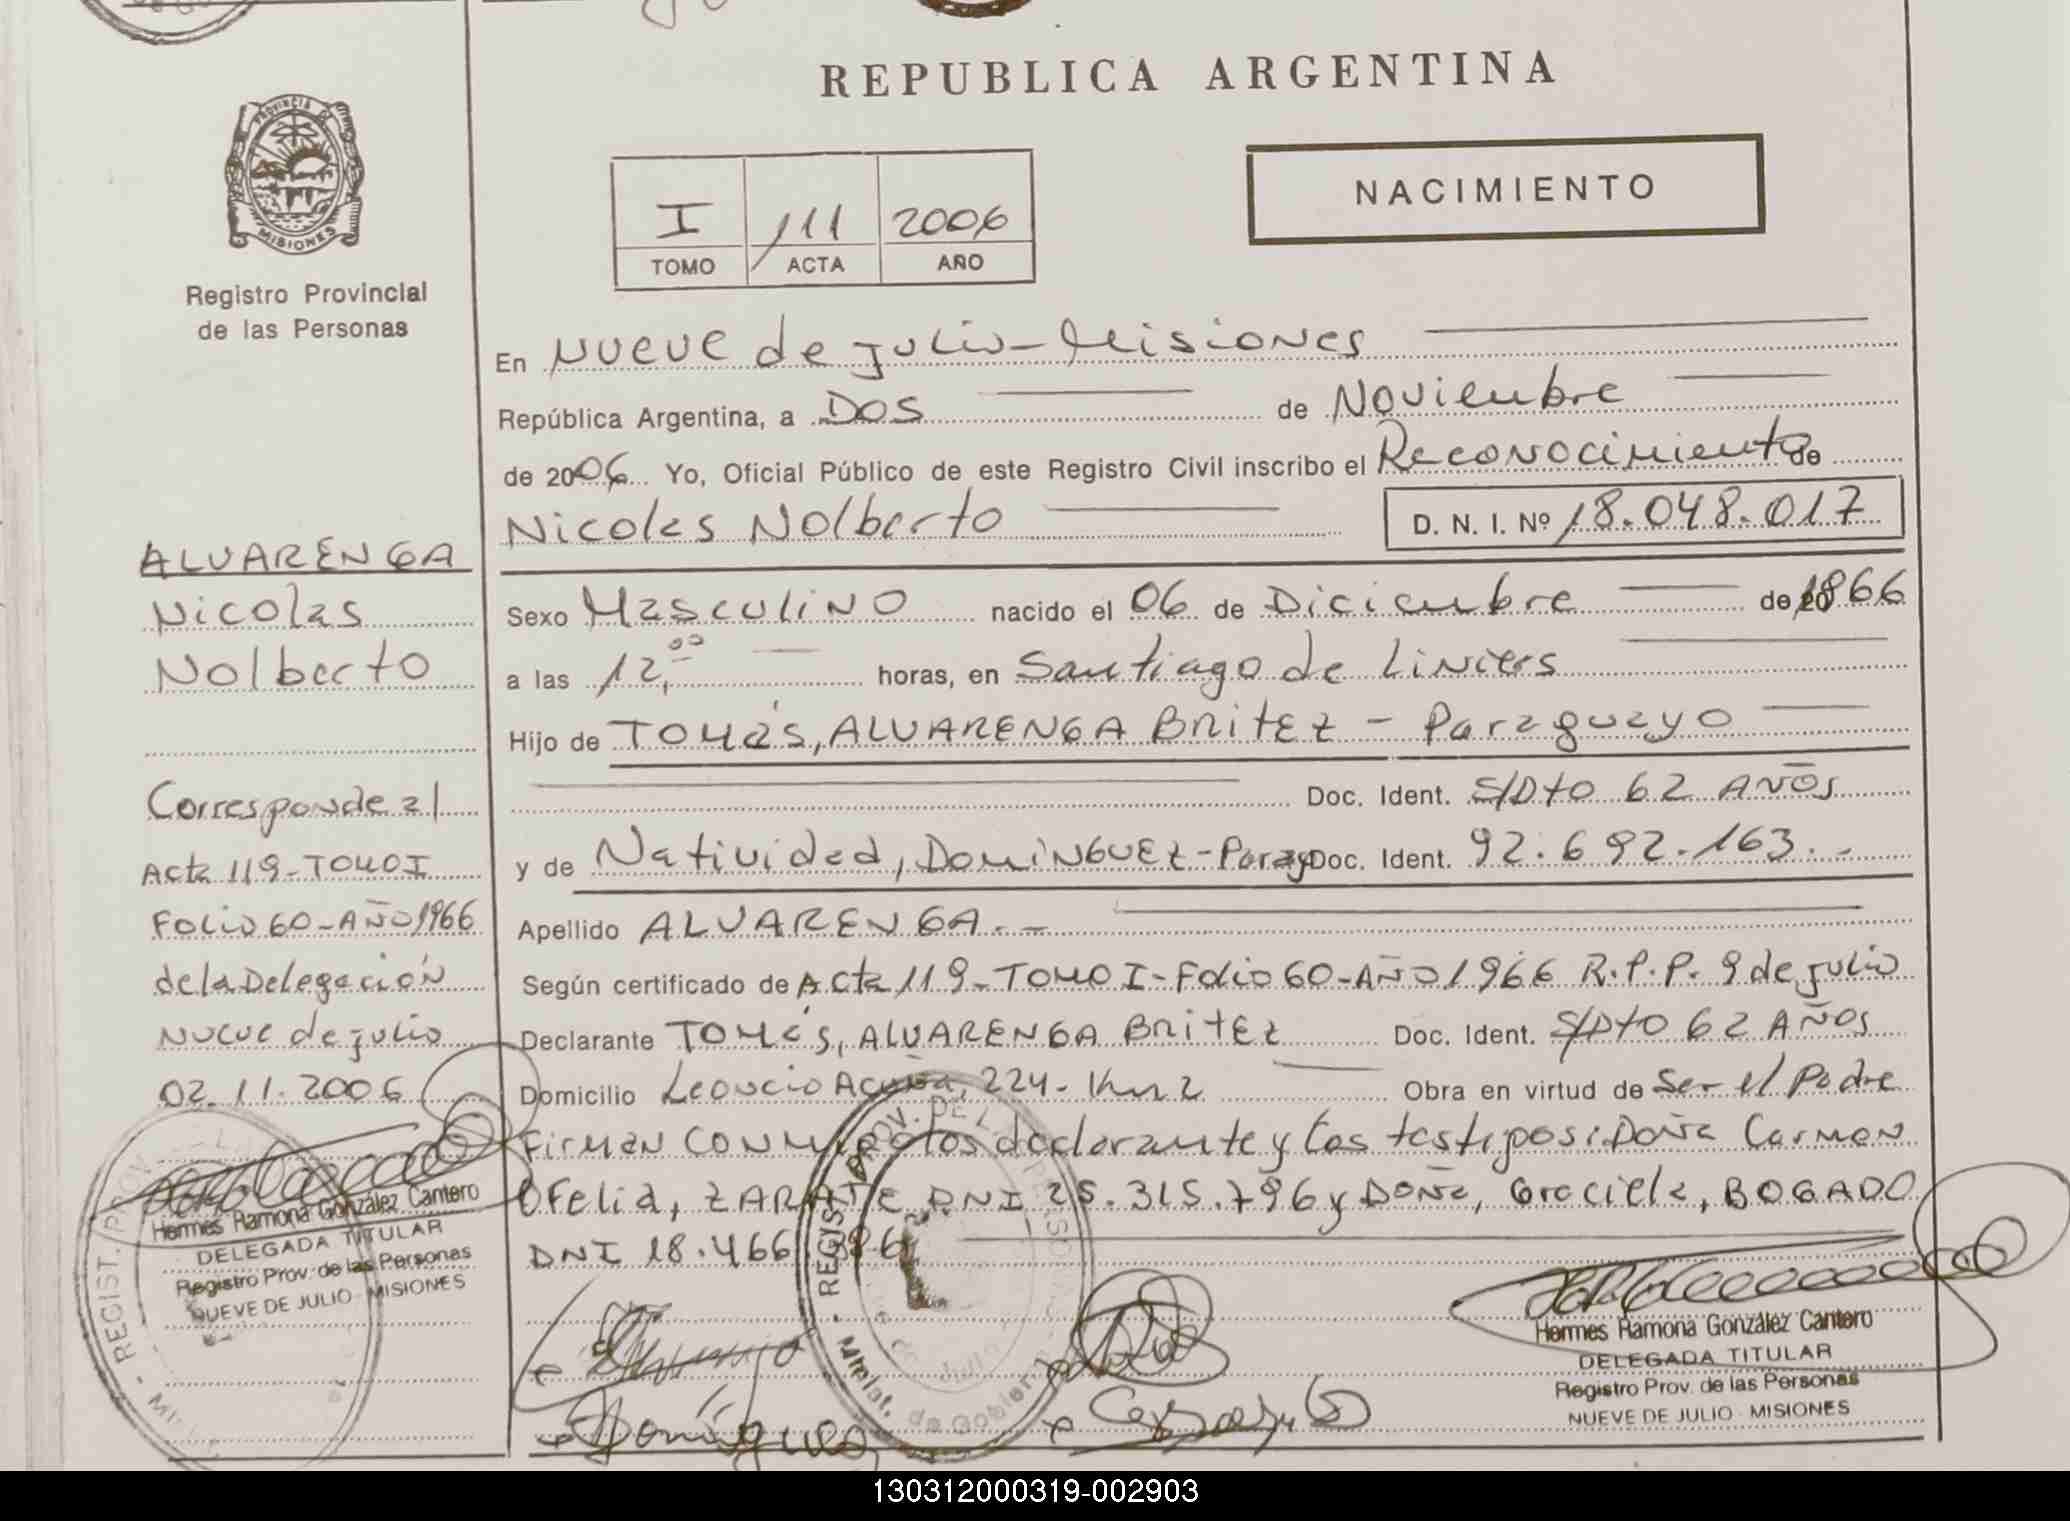 REPUBLICA ARGENTINA
PROVINCIA DE
MISIONES
Registro Provincial
de las Personas
I 111 2006
TOMO ACTA AÑO
NACIMIENTO
En Nueve de julio - Misiones
República Argentina, a Dos de Noviembre
de 2006 Yo, Oficial Público de este Registro Civil inscribo el Reconocimiento de
Nicolas Nolberto D. N. I. Nº 18.048.017
Sexo Masculino nacido el 06 de Diciembre de 1966
a las 12,00 horas, en Santiago de Liniers
Hijo de Tomás, ALVARENGA BRITEZ - Paraguayo
Doc. Ident. S/Dto 62 AÑOS
y de Natividad, DOMINGUEZ - Parag Doc. Ident. 92.692.163.-
Apellido ALVARENGA.-
Según certificado de Acta 119-TOMO I-Folio 60-AÑO 1966 R.P.P. 9 de julio
Declarante TOMÁS, ALVARENGA BRITEZ Doc. Ident. S/Dto 62 AÑOS
Domicilio Leoncio Acuña, 224 - Km 2 Obra en virtud de Ser el Padre
Firman conmigo los declarante y los testigos: Doña Carmen
Ofelia, ZARATE DNI 25.315.796 y Doña, Graciela, BOGADO
DNI 18.466.
ALVARENGA
Nicolas
Nolberto
Corresponde al
Acta 119-TOMO I
Folio 60-AÑO 1966
de la Delegación
Nueve de julio
02.11.2006
Hermes Ramona González Cantero
DELEGADA TITULAR
Registro Prov. de las Personas
NUEVE DE JULIO - MISIONES
Domínguez
Hermes Ramona González Cantero
DELEGADA TITULAR
Registro Prov. de las Personas
NUEVE DE JULIO - MISIONES
130312000319-002903